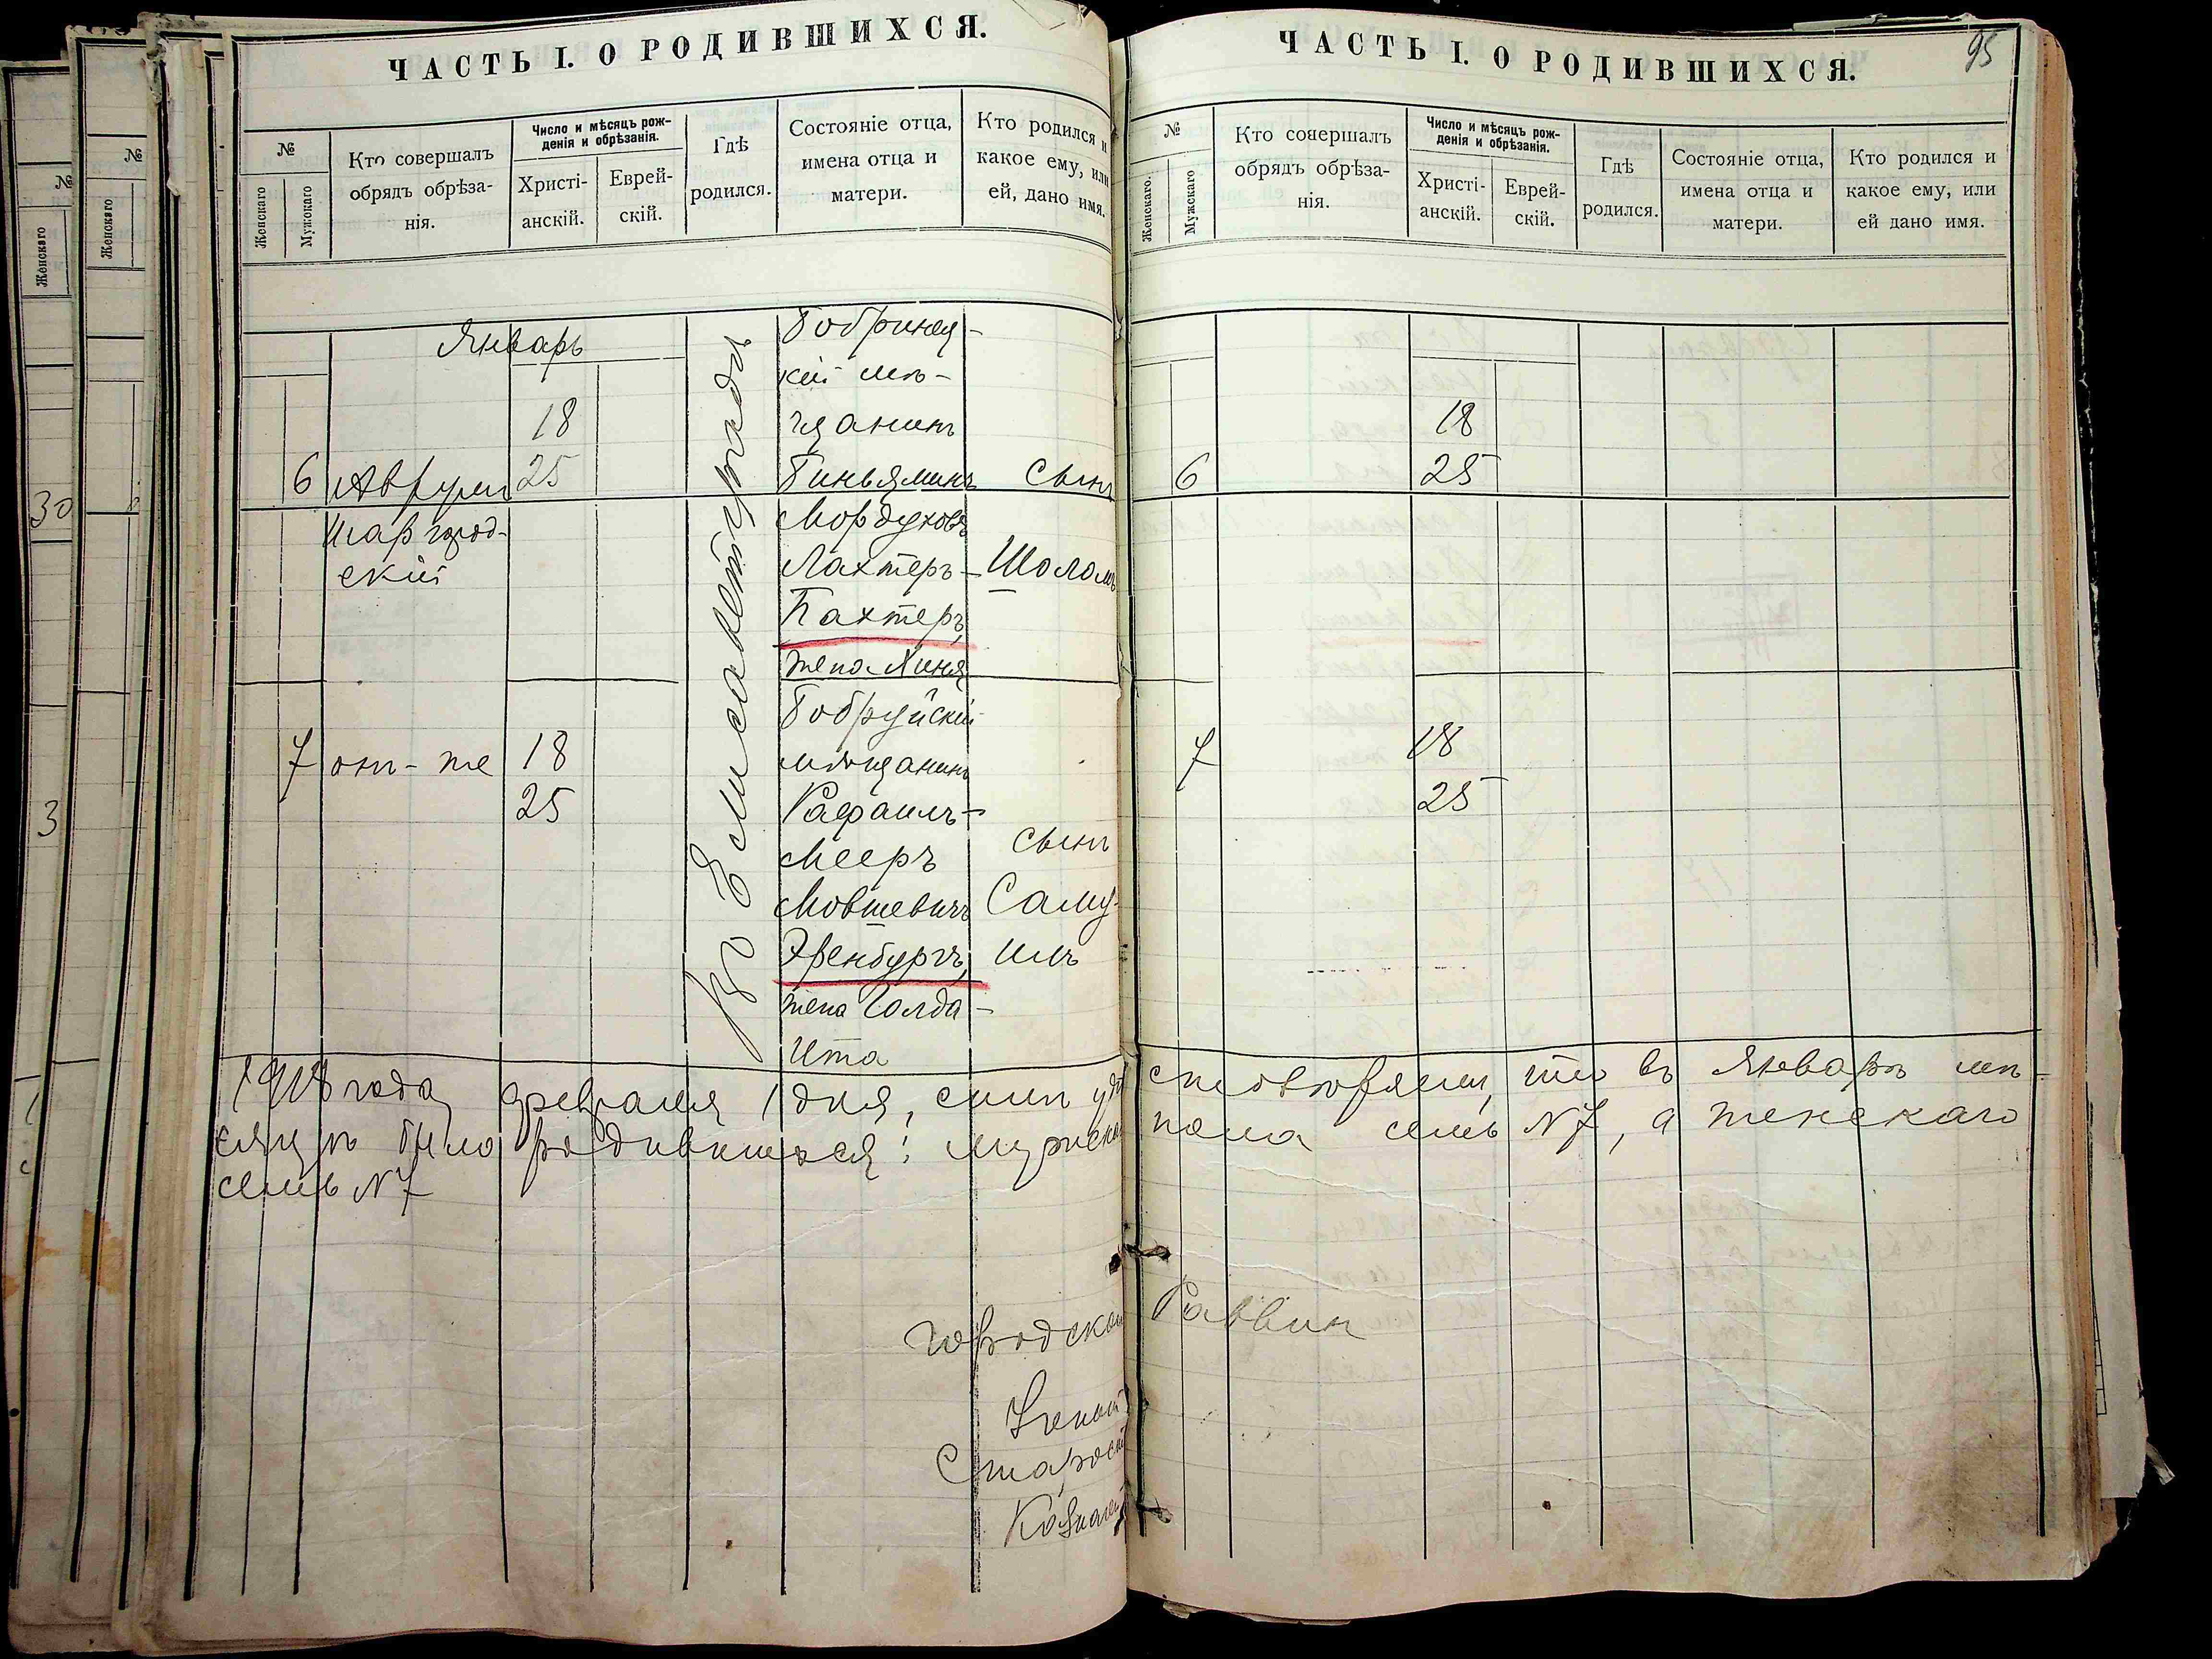 ЧАСТЬ I. О РОДИВШИХСЯ.
№
Женскаго
Мужскаго
Кто совершалъ
обрядъ обрѣза-
нія.
Число и мѣсяцъ рож-
денія и обрѣзанія.
Христі-
анскій.
Еврей-
скій.
Гдѣ
родился.
Состояніе отца,
имена отца и
матери.
Кто родился и
какое ему, или
ей, дано имя.
Январь
6
Аврумъ
Шаргород-
скій
18
25
Въ Елисаветградѣ
Бобринец-
кій мѣ-
щанинъ
Биньяминъ
Мордуховъ
Лахтеръ-
Пахтеръ,
жена Хиня
Сынъ
Шоломъ
7
онъ-же
18
25
Бобруйскій
мѣщанинъ
Рафаилъ-
Мееръ
Мовшевичъ
Эренбургъ,
жена Голда-
Ита
Сынъ
Саму-
илъ
ЧАСТЬ I. О РОДИВШИХСЯ.
95
№
Женскаго.
Мужскаго
Кто совершалъ
обрядъ обрѣза-
нія.
Число и мѣсяцъ рож-
денія и обрѣзанія.
Христі-
анскій.
Еврей-
скій.
Гдѣ
родился.
Состояніе отца,
имена отца и
матери.
Кто родился и
какое ему, или
ей дано имя.
6
18
25
7
18
25
года февраля 1 дня, симъ удо стовѣряемъ, что въ Январѣ мѣ-
сяцѣ было родившихся: мужскаго пола семь №7, а женскаго
семь №7
Городской Раввинъ
Ученый
Староста
Казначей